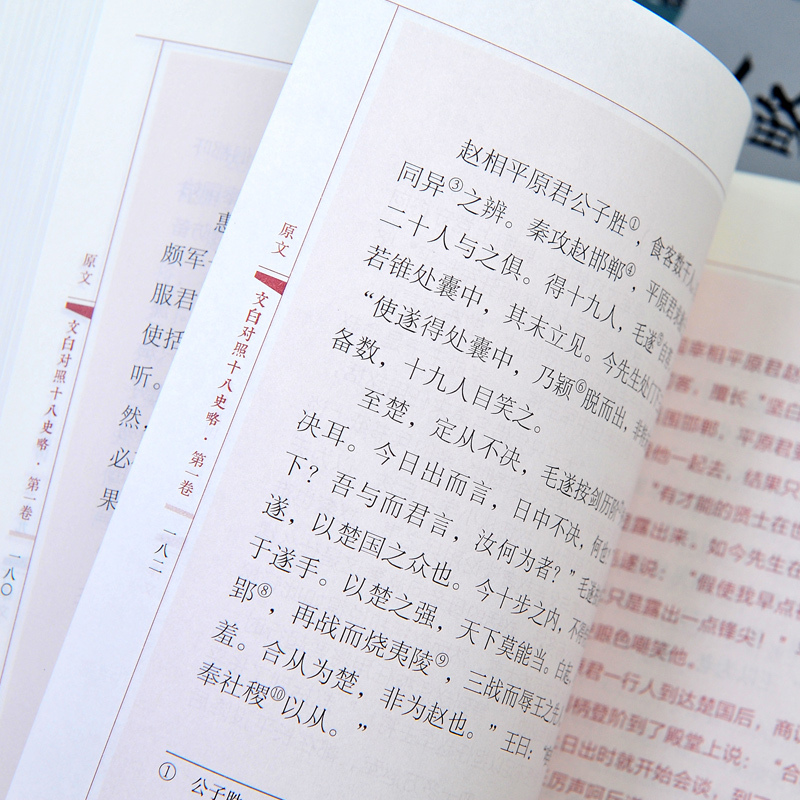 原文
文白对照十八史略·第一卷
一八〇
惠
颇军
服君
使括
听。
然，
必
果
原文
文白对照十八史略·第一卷
一八二
赵相平原君公子胜①，食客数千人
同异③之辨。秦攻赵邯郸④，平原君求
二十人与之俱。得十九人，毛遂⑤自
若锥处囊中，其末立见。今先生处门下
“使遂得处囊中，乃颖⑥脱而出，非
备数，十九人目笑之。
至楚，定从不决，毛遂按剑历阶
决耳。今日出而言，日中不决，何也
下？吾与而君言，汝何为者？”毛遂
遂，以楚国之众也。今十步之内，不得
于遂手。以楚之强，天下莫能当。白起
郢⑧，再战而烧夷陵⑨，三战而辱王之先
羞。合从为楚，非为赵也。”王曰：“
奉社稷⑩以从。”
① 公子胜
宰相平原君赵
客，擅长“坚白
围邯郸，平原君
他一起去，结果只
“有才能的贤士在世
露出来，如今先生在
遂说：“假使我早点
只是露出一点锋尖！”
眼色嘲笑他。
君一行人到达楚国后，商议
柄登阶到了殿堂上说：“合
日出时就开始会谈，到
厉声回应
略